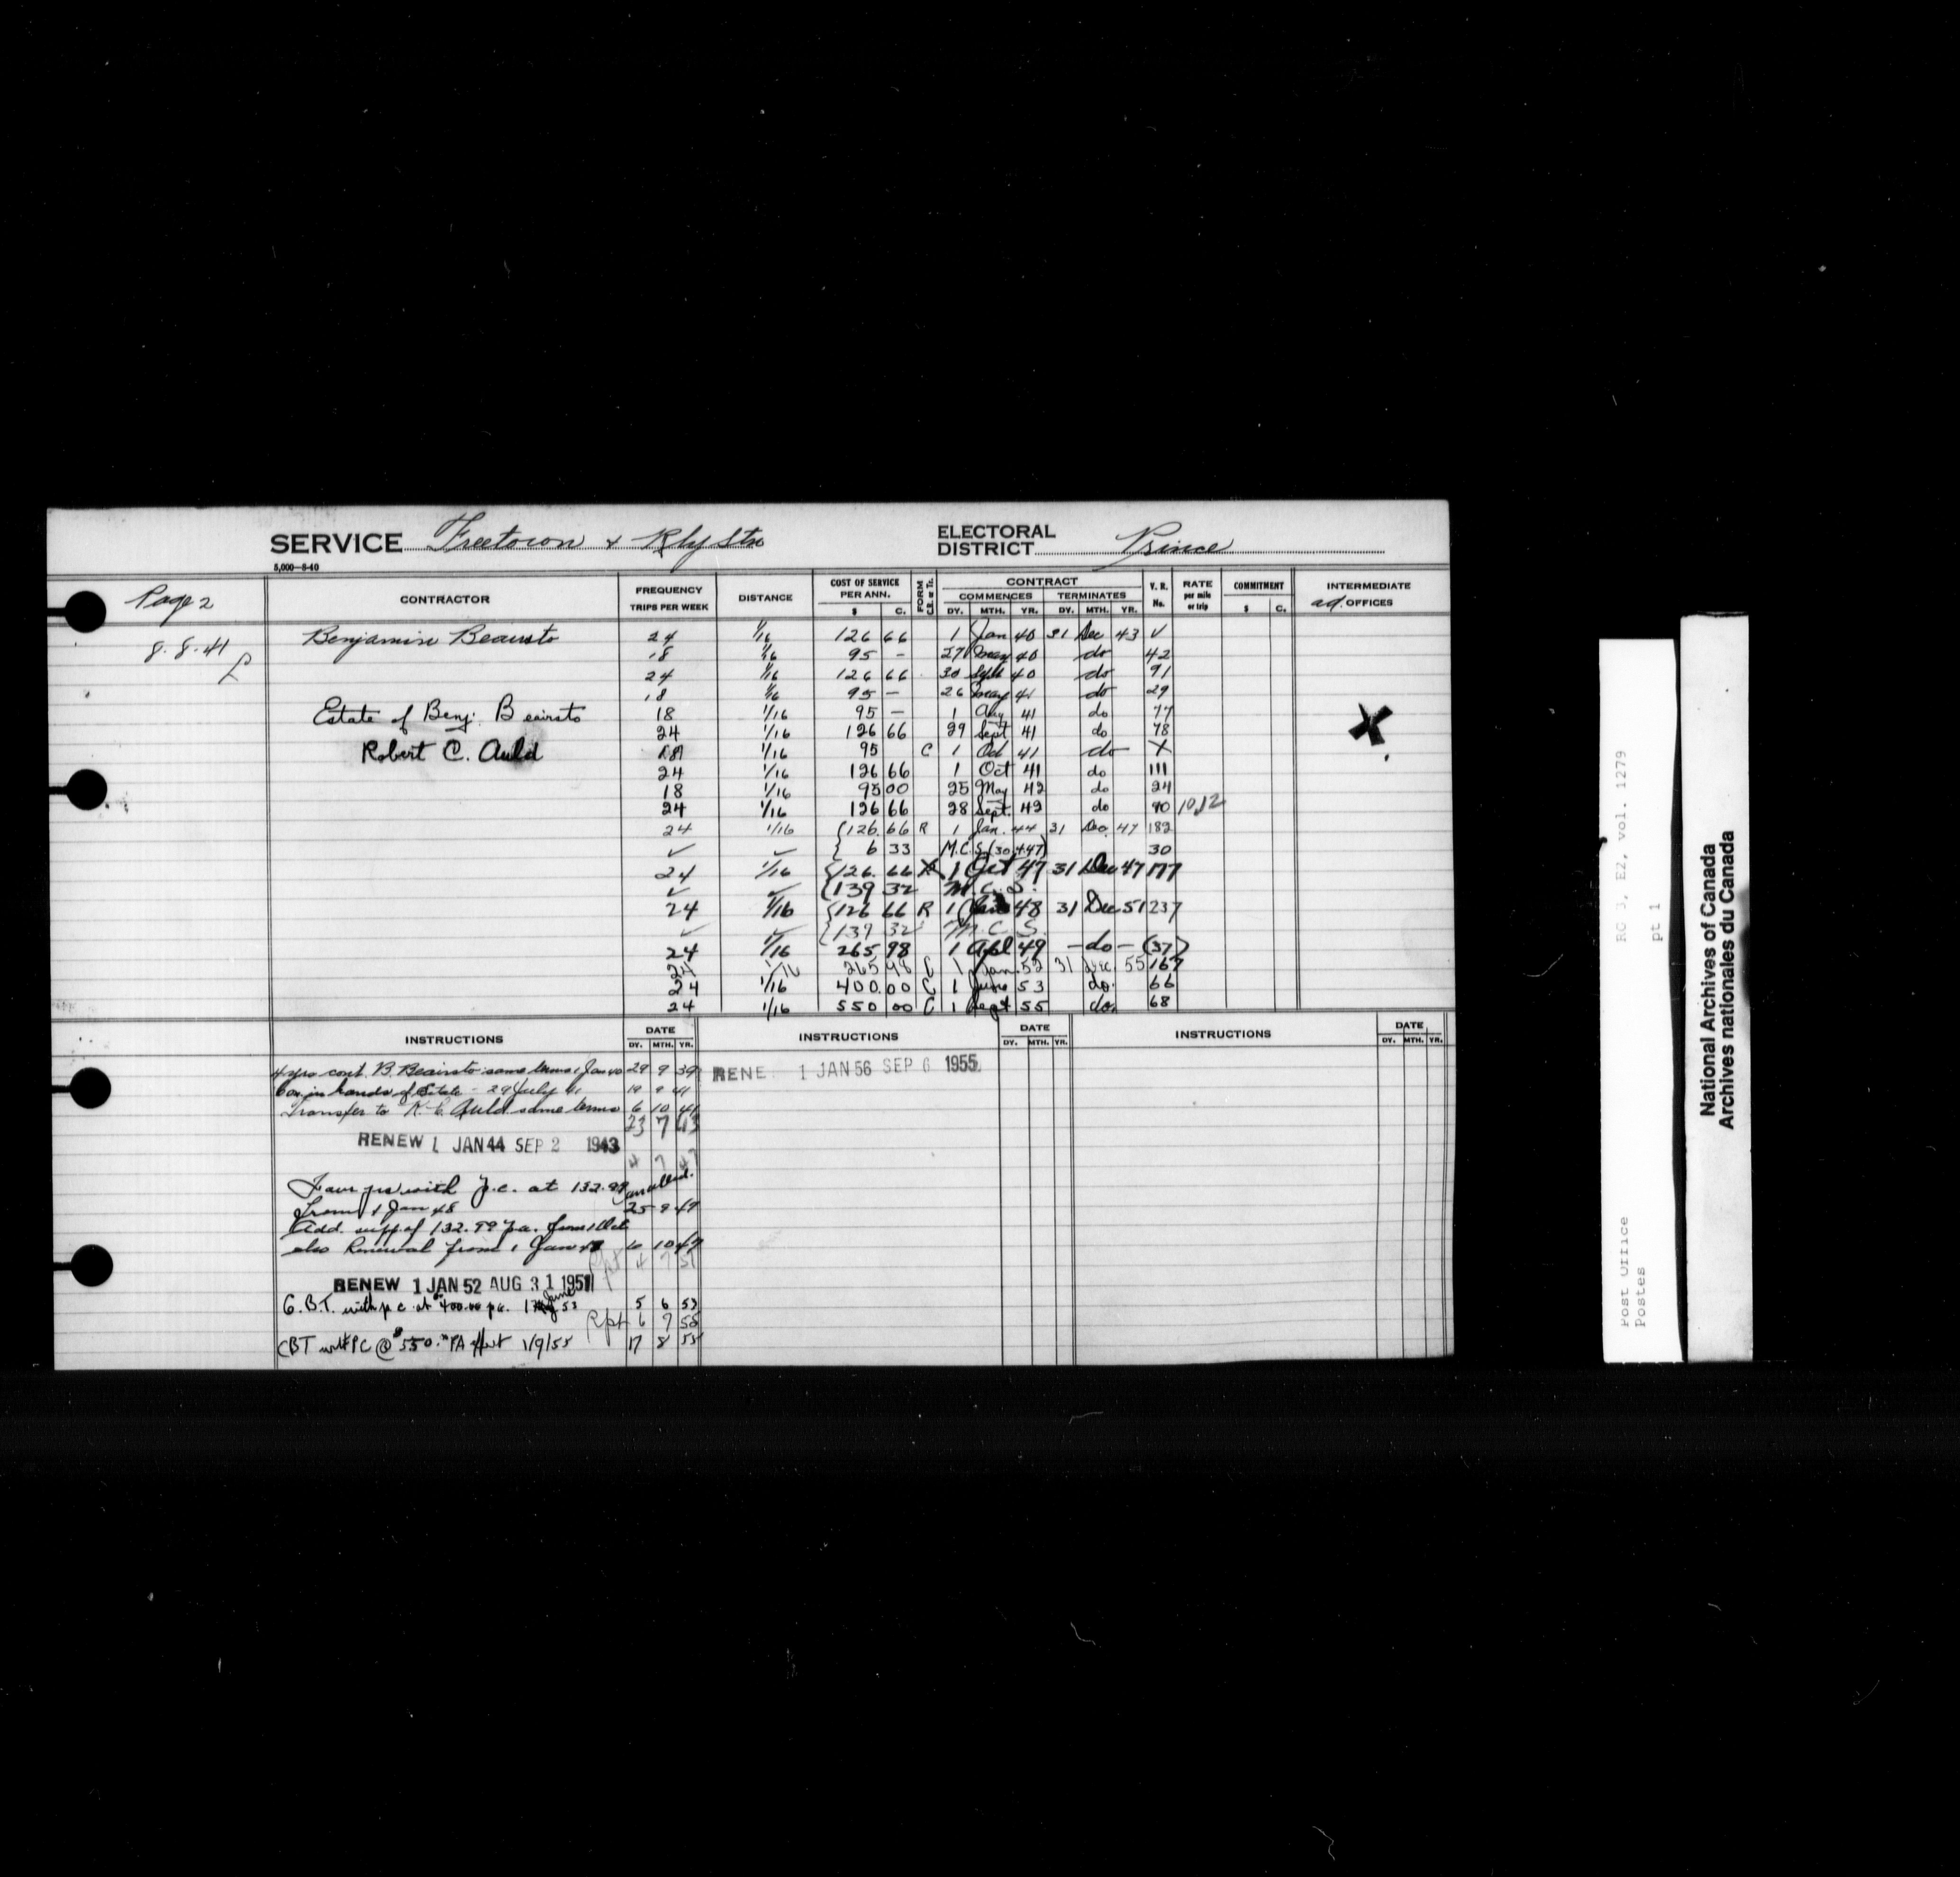 SERVICE Freetown & Rly Stn ELECTORAL DISTRICT Prince
5,000-8-40
Page 2 CONTRACTOR FREQUENCY TRIPS PER WEEK DISTANCE COST OF SERVICE PER ANN. $ C. FORM CONTRACT COMMENCES DY. MTH. YR. TERMINATES DY. MTH. YR. V. R. No. RATE per mile or trip COMMITMENT $ C. INTERMEDIATE ad. OFFICES
8.8.41 Benjamin Beairsto 24 1/16 126 66 1 Jan 40 31 Dec 43 √
18 1/16 95 - 27 May 40 do 42
24 1/16 126 66 30 Sept 40 do 91
18 1/16 95 - 26 May 41 do 29
Estate of Benj. Beairsto 18 1/16 95 - 1 Aug 41 do 77
24 1/16 126 66 29 Sept 41 do 78
Robert C. Auld 18 1/16 95 C 1 Oct 41 do X
24 1/16 126 66 1 Oct 41 do 111
18 1/16 95 00 25 May 42 do 24
24 1/16 126 66 28 Sept. 42 do 90 10.12
24 1/16 126.66 R 1 Jan. 44 31 Dec. 47 182
✓ 6 33 M.C.S. (30-4-47) 30
24 1/16 126.66 1 Oct 47 31 Dec 47 177
✓ ✓ 139 32 M.C.S.
24 1/16 126 66 R 1 Jan 48 31 Dec 51 237
✓ ✓ 139 32 M.C.S.
24 1/16 265.98 1 Apl 49 -do- (37)
24 1/16 265.98 C 1 Jan. 52 31 Dec. 55 167
24 1/16 400.00 C 1 June 53 do. 66
24 1/16 550 00 C 1 Sept 55 do. 68
INSTRUCTIONS DATE DY. MTH. YR. INSTRUCTIONS DATE DY. MTH. YR. INSTRUCTIONS DATE DY. MTH. YR.
4 yrs cont. B. Beairsto same terms 1 Jan 40 29 9 39
RENE 1 JAN 56 SEP 6 1955
in hands of Estate - 29 July 41 19 9 41
Transfer to R. C. Auld same terms 6 10 41
23 7 43
RENEW 1 JAN 44 SEP 2 1943
4 7 47
Four yrs with p.c. at 132.99 cancelled.
from 1 Jan 48 25 9 47
Add. supp. of 132.99 p.a. from 1 Oct
also Renewal from 1 Jan 48 10 47
Rpt 4 7 51
RENEW 1 JAN 52 AUG 31 1951
C.B.T. with p c at $400.00 p.a. 1 June 53 5 6 53
Rpt 6 7 55
CBT with PC @ $550. PA effect 1/9/55 17 8 55
Post Office
Postes
RG 3, E2, vol. 1279
pt 1
National Archives of Canada
Archives nationales du Canada